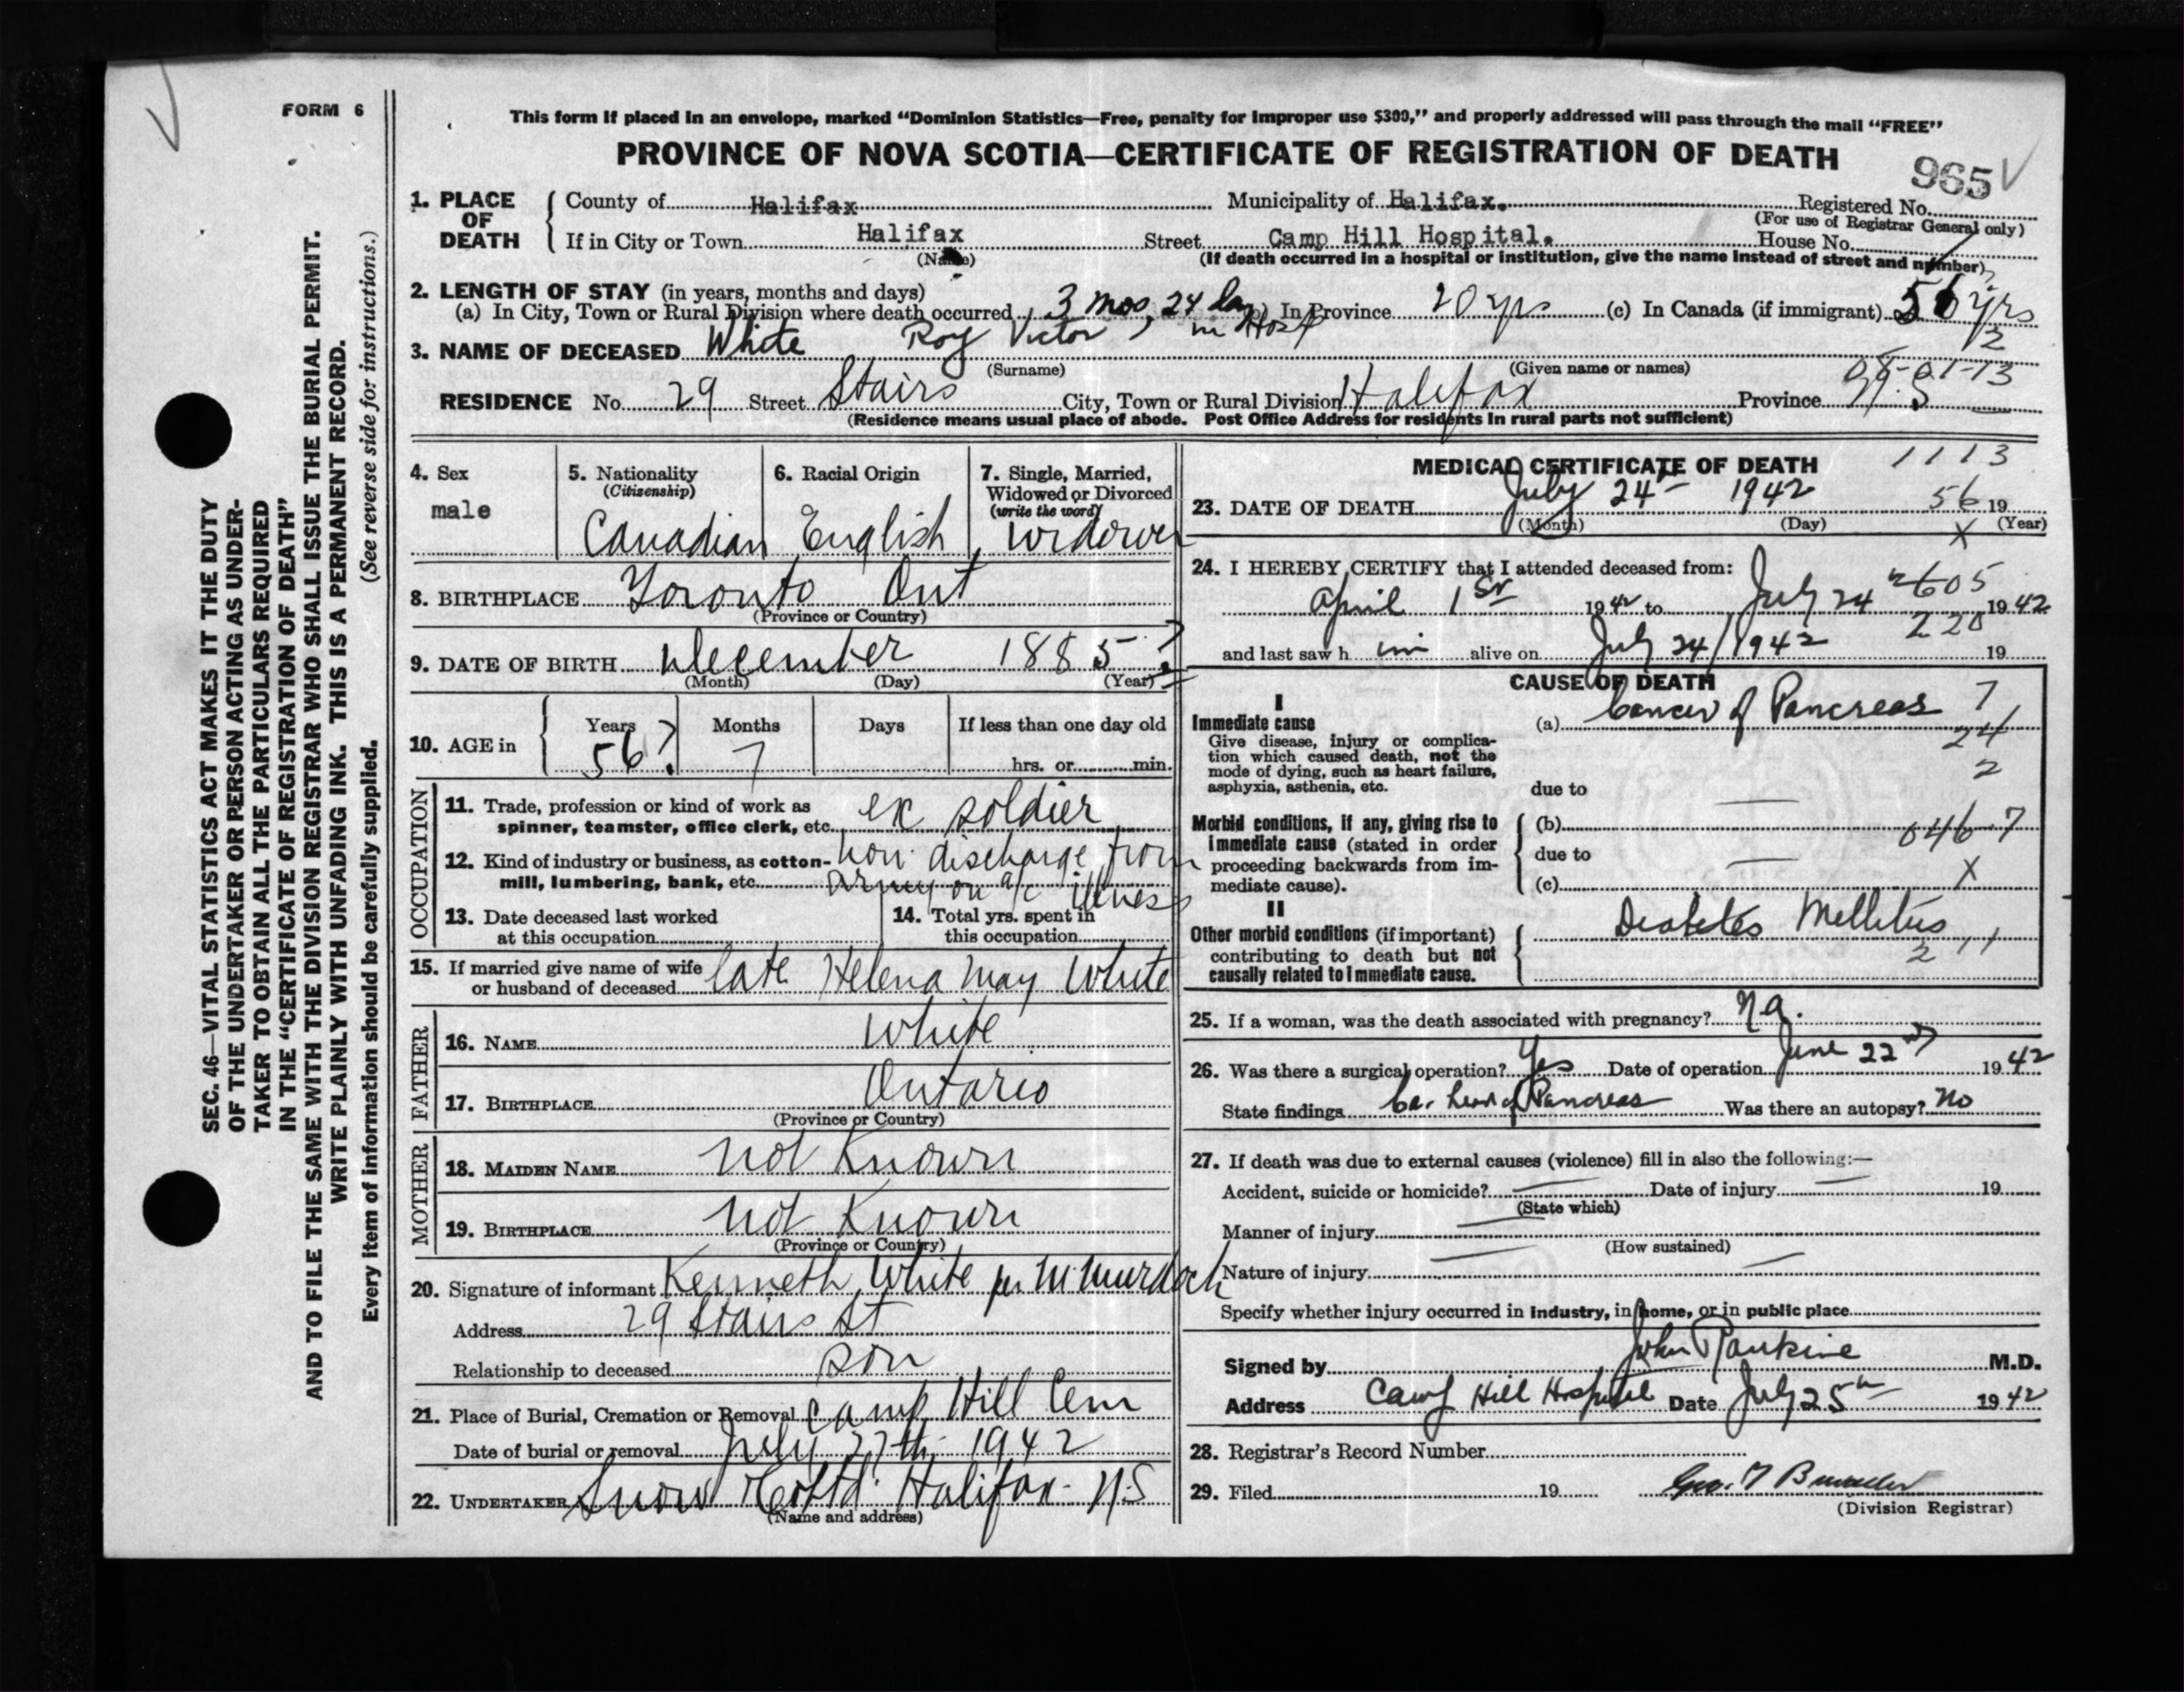 FORM 6
This form if placed in an envelope, marked "Dominion Statistics—Free, penalty for improper use $300," and properly addressed will pass through the mail "FREE"
PROVINCE OF NOVA SCOTIA—CERTIFICATE OF REGISTRATION OF DEATH
965
1. PLACE OF DEATH
County of Halifax Municipality of Halifax. Registered No.
(For use of Registrar General only)
If in City or Town Halifax Street Camp Hill Hospital. House No.
(Name) (If death occurred in a hospital or institution, give the name instead of street and number)
2. LENGTH OF STAY (in years, months and days)
(a) In City, Town or Rural Division where death occurred 3 mos, 24 da in Hosp In Province 20 yrs (c) In Canada (if immigrant) 56 yrs
3. NAME OF DECEASED White Roy Victor
2
(Surname) (Given name or names)
08-01-13
RESIDENCE No. 29 Street Stairs City, Town or Rural Division Halifax Province N.S
(Residence means usual place of abode. Post Office Address for residents in rural parts not sufficient)
4. Sex
male
5. Nationality
(Citizenship)
Canadian
6. Racial Origin
English
7. Single, Married,
Widowed or Divorced
(write the word)
widower
8. BIRTHPLACE Toronto Ont
(Province or Country)
9. DATE OF BIRTH December 1885 ?
(Month) (Day) (Year)
10. AGE in
Years Months Days If less than one day old
56? 7 hrs. or min.
OCCUPATION
11. Trade, profession or kind of work as
spinner, teamster, office clerk, etc. ex soldier
12. Kind of industry or business, as cotton-
mill, lumbering, bank, etc. hon. discharge from
Army on a/c illness
13. Date deceased last worked
at this occupation
14. Total yrs. spent in
this occupation
15. If married give name of wife
or husband of deceased late Helena May White
FATHER
16. NAME White
17. BIRTHPLACE Ontario
(Province or Country)
MOTHER
18. MAIDEN NAME not Known
19. BIRTHPLACE not Known
(Province or Country)
20. Signature of informant Kenneth White per M Murdoch
Address 29 Stairs St
Relationship to deceased son
21. Place of Burial, Cremation or Removal Camp Hill Cem
Date of burial or removal July 27th 1942
22. UNDERTAKER Snow & Co Ltd. Halifax- N.S
(Name and address)
MEDICAL CERTIFICATE OF DEATH
1113
23. DATE OF DEATH July 24th 1942 56 19
(Month) (Day) (Year)
X
24. I HEREBY CERTIFY that I attended deceased from:
2605
April 1st 1942 to July 24 1942
220
and last saw him alive on July 24/1942 19
CAUSE OF DEATH
I
Immediate cause
Give disease, injury or complica-
tion which caused death, not the
mode of dying, such as heart failure,
asphyxia, asthenia, etc.
(a) Cancer of Pancreas 7
24
2
due to
Morbid conditions, if any, giving rise to
immediate cause (stated in order
proceeding backwards from im-
mediate cause).
(b) 046-7
due to
(c) X
II
Other morbid conditions (if important)
contributing to death but not
causally related to immediate cause.
Diabetes Mellitus
2 11
25. If a woman, was the death associated with pregnancy? Na.
26. Was there a surgical operation? Yes Date of operation June 22nd 1942
State findings Ca. head of Pancreas Was there an autopsy? No
27. If death was due to external causes (violence) fill in also the following:—
Accident, suicide or homicide? Date of injury 19
(State which)
Manner of injury
(How sustained)
Nature of injury
Specify whether injury occurred in industry, in home, or in public place
Signed by John Rankine M.D.
Address Camp Hill Hospital Date July 25th 1942
28. Registrar's Record Number
29. Filed 19
(Division Registrar)
SEC. 46—VITAL STATISTICS ACT MAKES IT THE DUTY
OF THE UNDERTAKER OR PERSON ACTING AS UNDER-
TAKER TO OBTAIN ALL THE PARTICULARS REQUIRED
IN THE "CERTIFICATE OF REGISTRATION OF DEATH"
AND TO FILE THE SAME WITH THE DIVISION REGISTRAR WHO SHALL ISSUE THE BURIAL PERMIT.
WRITE PLAINLY WITH UNFADING INK. THIS IS A PERMANENT RECORD.
Every item of information should be carefully supplied. (See reverse side for instructions.)